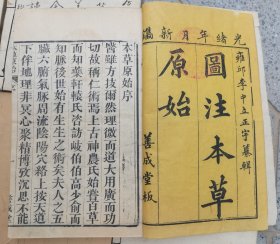 光緒年月新鐫
雍邱李中立正宇纂輯
圖注本草
原始
善成堂板
本草原始序
醫雖方技爾然理微而道大用廣而功
切故稱仁術焉上古神農氏始嘗百草
而知藥軒轅氏咨訪岐伯伯高少俞而
知脈後世始有生生之術矣夫人之五
臟六腑氣脈周流陰陽穴絡上按天道
下伴地理非 心聚精博致沉思不能